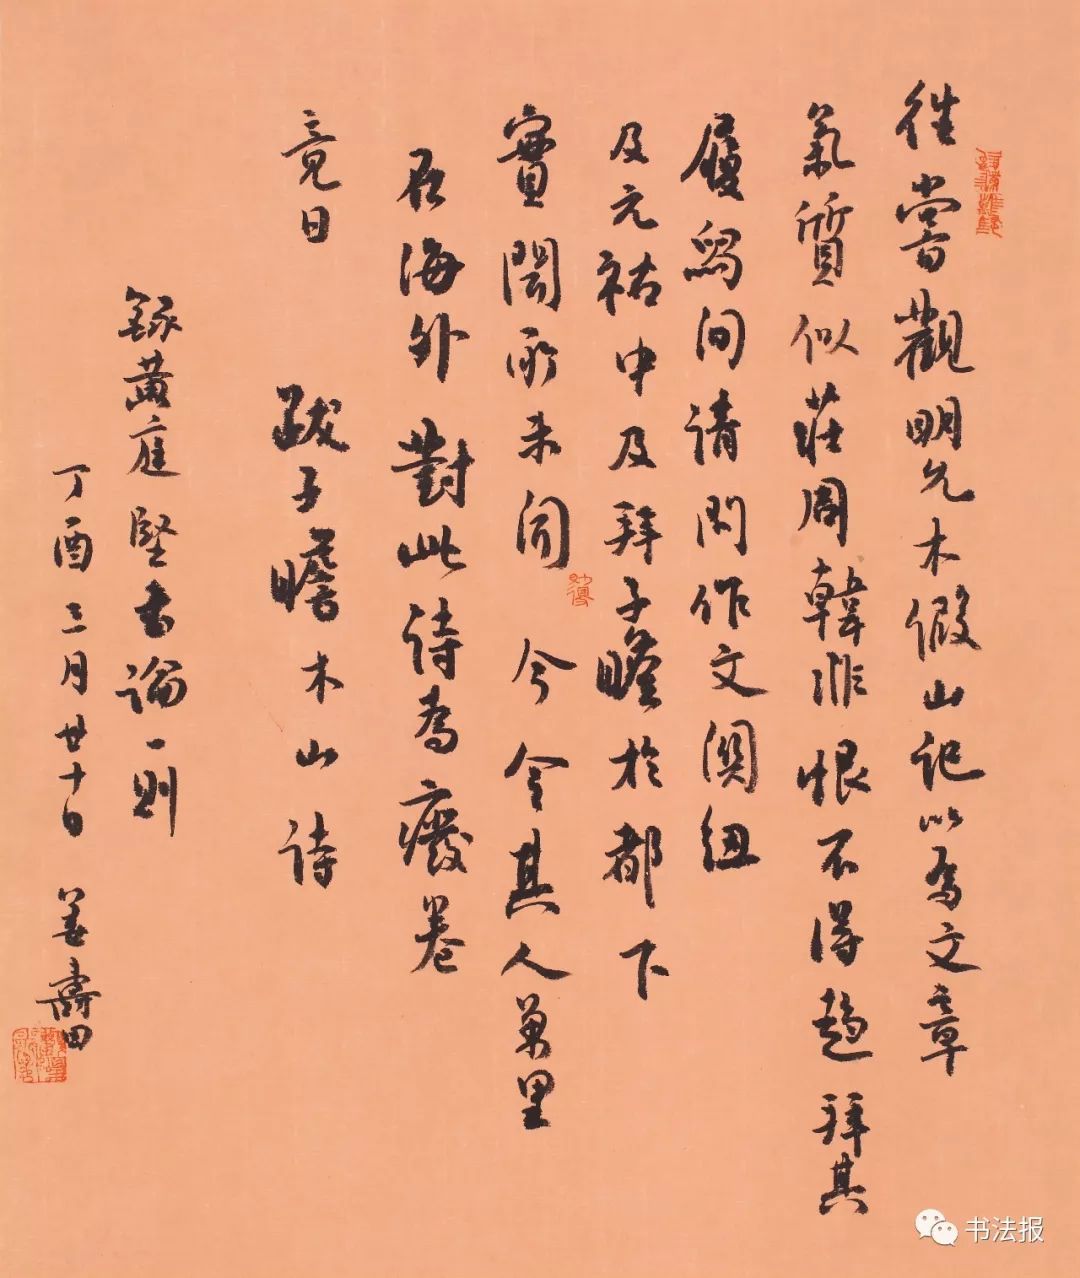 往嘗觀明允木假山記以為文章
氣質似莊周韓非恨不得趨拜其
履舄間請問作文關紐
及元祐中及拜子瞻於都下
實聞所未聞 今令其人萬里
在海外對此詩為廢卷
竟日 跋子瞻木山詩
錄黃庭堅書論一則
丁酉三月廿十日 姜壽田
书法报